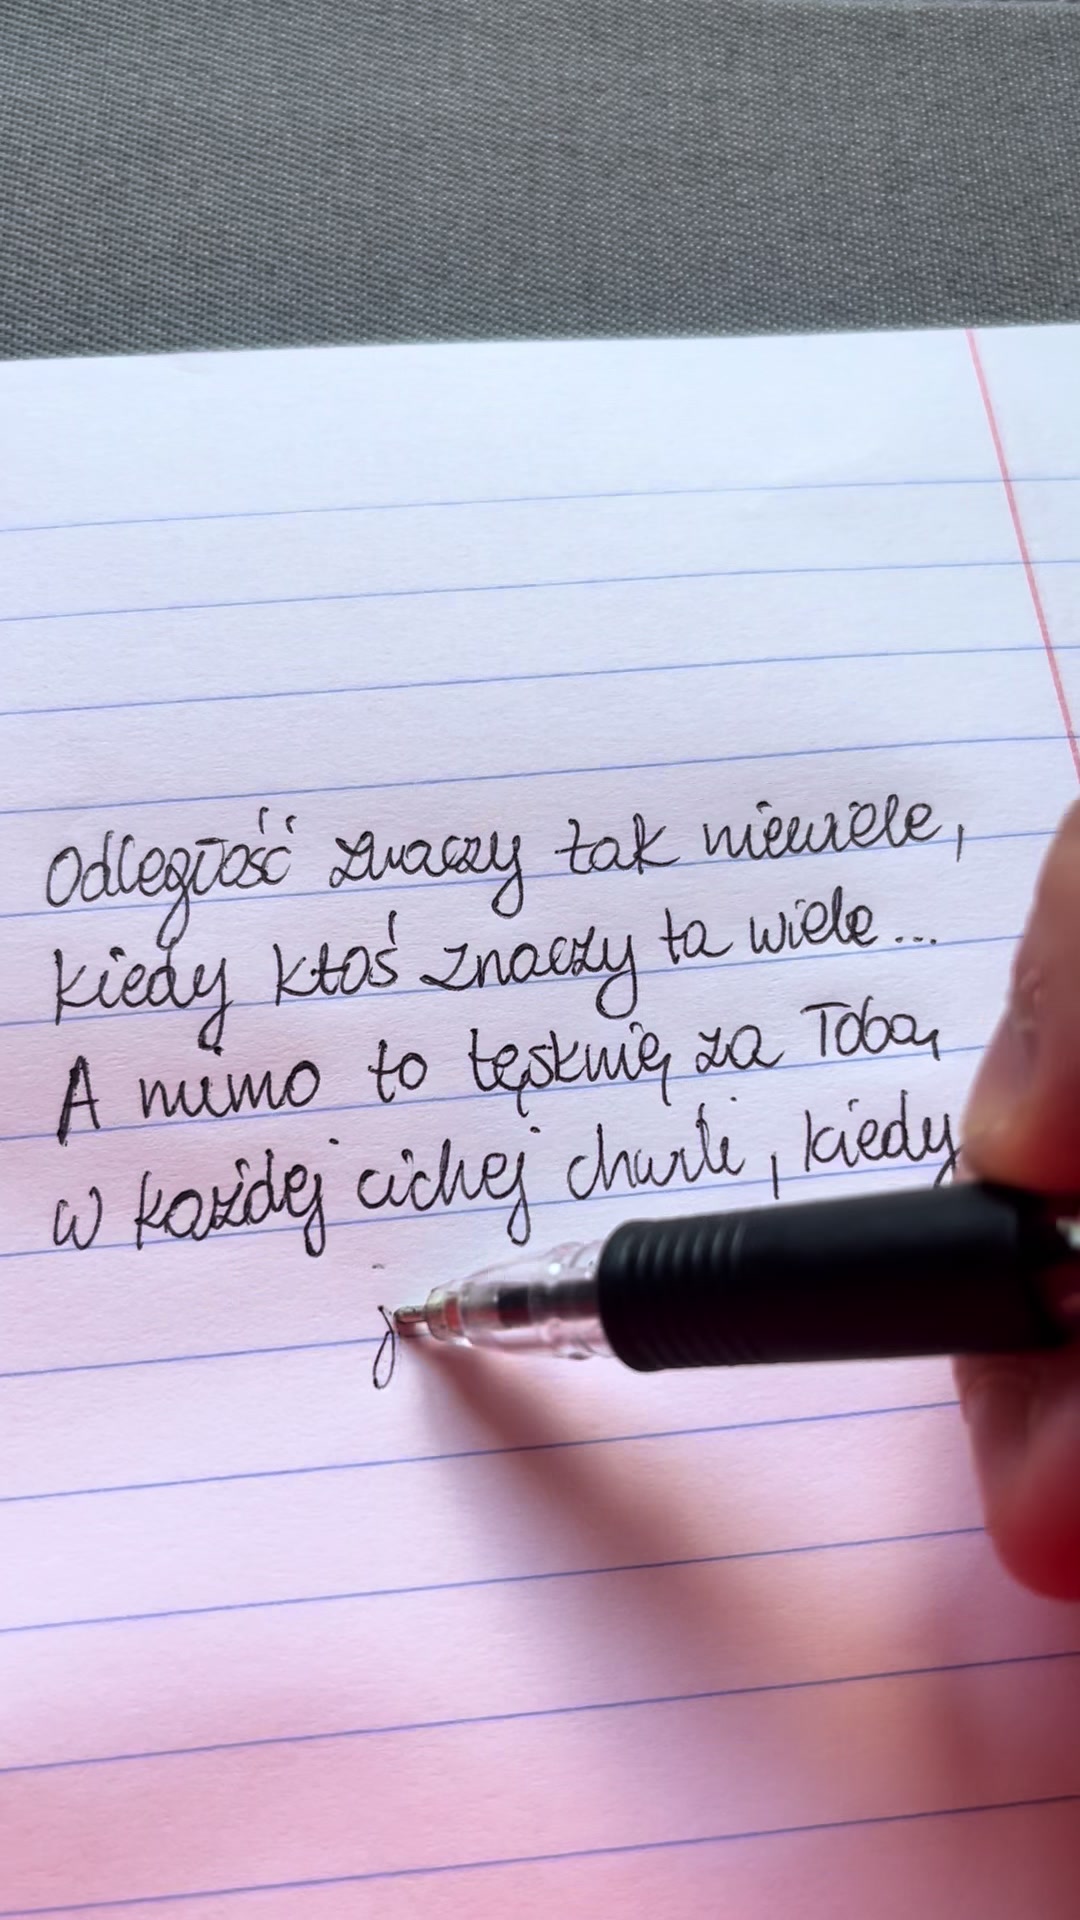 Odległość znaczy tak niewiele,
kiedy ktoś znaczy ta wiele...
A mimo to tęsknię za Tobą,
w każdej cichej chwili, kiedy
j